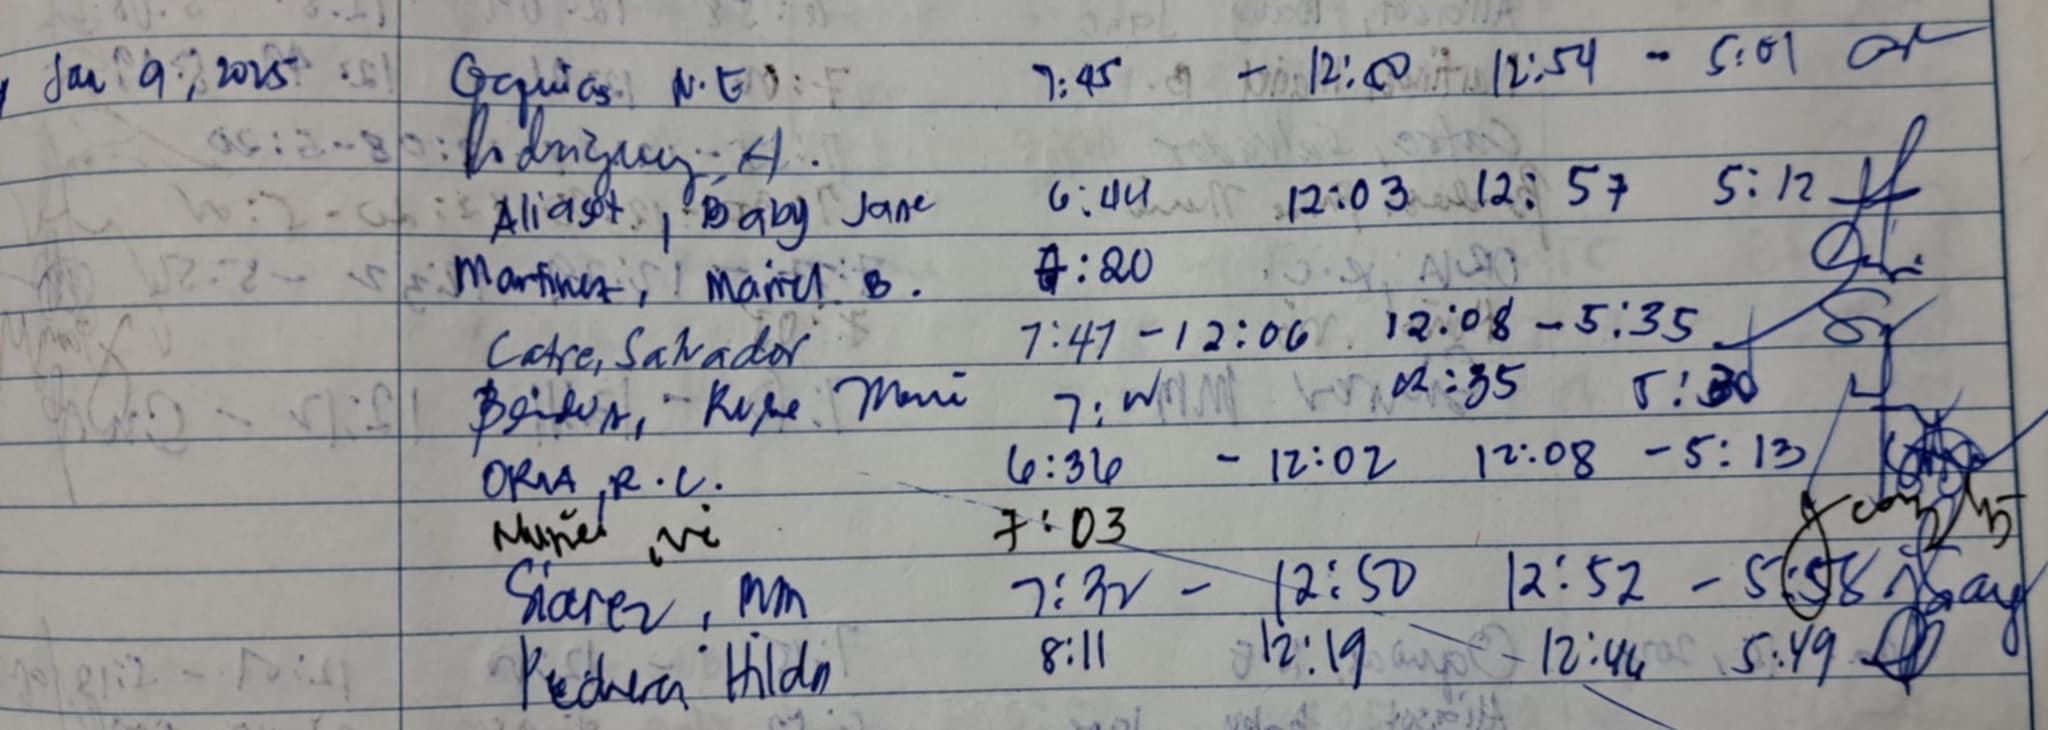 Jan 9, 2025 Oquias N.E 7:45 - 12:00 12:54 - 5:01
Rodriguez, A.
Aliasot, Baby Jane 6:44 12:03 12:57 5:12
Martinez, Mairel B. 7:20
Catre, Salvador 7:47 - 12:06 12:08 - 5:35
Marie 12:35 5:30
ORIA, R.C. 6:36 - 12:02 12:08 - 5:13
Nuñez, vi 7:03
Siarez, MM 7:32 - 12:50 12:52 - 5:58
Pedrera, Hilda 8:11 12:19 - 12:44 5:49